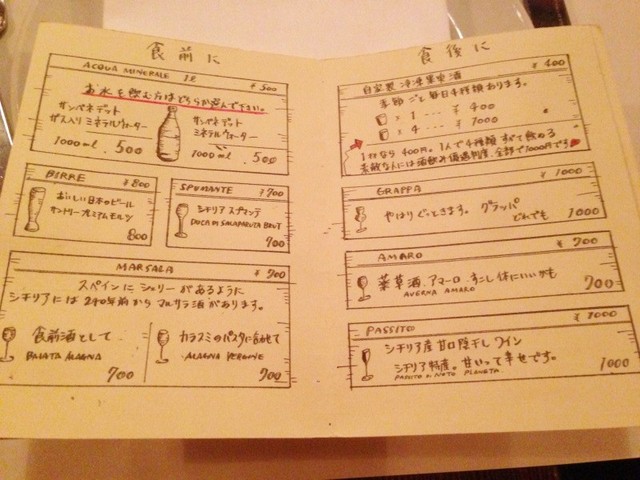 食前に
ACQUA MINERALE 1ℓ ¥500
お水を飲む方はどちらか選んで下さい。
サンベネデット
ガス入りミネラルウォーター
1000ml. 500
サンベネデット
ミネラルウォーター
1000ml. 500
BIRRE ¥800
おいしい日本のビール
サントリープレミアムモルツ
800
SPUMANTE ¥700
シチリア スプマンテ
DUCA DI SALAPARUTA BRUT
700
MARSALA ¥700
スペインにシェリーがあるように
シチリアには240年前からマルサラ酒があります。
食前酒として
700
カラスミのパスタに合わせて
700
食後に
自家製 冷凍果実酒 ¥400
季節ごと毎日4種類あります。
×1 --- ¥400
×4 --- ¥1000
1杯なら400円。1人で4種類すべて飲める
素敵な人には酒飲み優遇制度。全部で1000円です
GRAPPA ¥1000
やはりぐっときます。グラッパ
どれでも 1000
AMARO ¥700
薬草酒、アマーロ。すこし体にいいかも
AVERNA AMARO 700
PASSITO ¥1000
シチリア産 甘口陰干しワイン
シチリア特産。甘いって幸せです。
PASSITO DI NOTO PLANETA. 1000